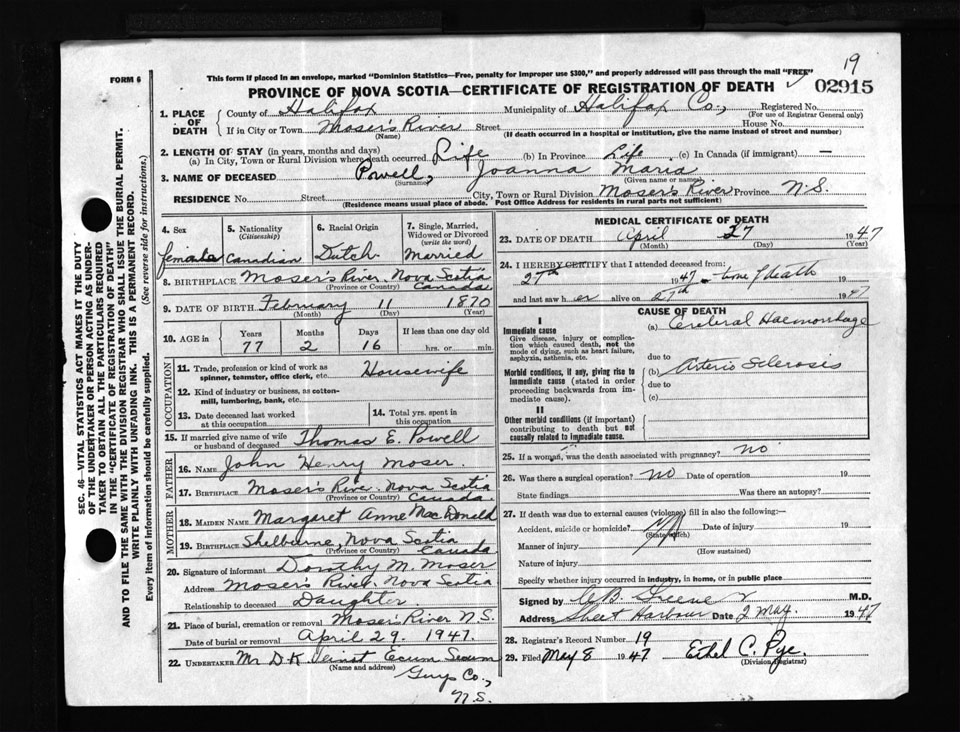 19
FORM 6
This form if placed in an envelope, marked "Dominion Statistics—Free, penalty for improper use $300," and properly addressed will pass through the mail "FREE"
PROVINCE OF NOVA SCOTIA—CERTIFICATE OF REGISTRATION OF DEATH 02915
1. PLACE OF DEATH County of Halifax Municipality of Halifax Co., Registered No.
(For use of Registrar General only)
If in City or Town Moser's River Street House No.
(Name) (If death occurred in a hospital or institution, give the name instead of street and number)
2. LENGTH OF STAY (in years, months and days)
(a) In City, Town or Rural Division where death occurred Life (b) In Province Life (c) In Canada (if immigrant) —
3. NAME OF DECEASED Powell, Joanna Maria
(Surname) (Given name or names)
RESIDENCE No. Street City, Town or Rural Division Moser's River Province N.S.
(Residence means usual place of abode. Post Office Address for residents in rural parts not sufficient)
4. Sex 5. Nationality (Citizenship) 6. Racial Origin 7. Single, Married, Widowed or Divorced (write the word)
female Canadian Dutch Married
8. BIRTHPLACE Moser's River, Nova Scotia
(Province or Country) Canada
9. DATE OF BIRTH February 11 1870
(Month) (Day) (Year)
10. AGE in Years Months Days If less than one day old
77 2 16 hrs. or min.
OCCUPATION
11. Trade, profession or kind of work as spinner, teamster, office clerk, etc. Housewife
12. Kind of industry or business, as cotton-mill, lumbering, bank, etc.
13. Date deceased last worked at this occupation 14. Total yrs. spent in this occupation
15. If married give name of wife or husband of deceased Thomas E. Powell
FATHER
16. NAME John Henry Moser
17. BIRTHPLACE Moser's River, Nova Scotia
(Province or Country) Canada
MOTHER
18. MAIDEN NAME Margaret Anne MacDonald
19. BIRTHPLACE Shelburne, Nova Scotia
(Province or Country) Canada
20. Signature of informant Dorothy M. Moser
Address Moser's River, Nova Scotia
Relationship to deceased Daughter
21. Place of burial, cremation or removal Moser's River N.S.
Date of burial or removal April 29, 1947.
22. UNDERTAKER Mr D.K. Ecum Secum
(Name and address) Guys Co.,
N.S.
MEDICAL CERTIFICATE OF DEATH
23. DATE OF DEATH April 27 1947
(Month) (Day) (Year)
24. I HEREBY CERTIFY that I attended deceased from:
27th 1947 time of death 19
and last saw her alive on 27th 1947
CAUSE OF DEATH
I
Immediate cause (a) Cerebral Haemorrhage
Give disease, injury or complication which caused death, not the mode of dying, such as heart failure, asphyxia, asthenia, etc.
due to
Morbid conditions, if any, giving rise to immediate cause (stated in order proceeding backwards from immediate cause).
(b) Arterio Sclerosis
due to
(c)
II
Other morbid conditions (if important) contributing to death but not causally related to immediate cause.
25. If a woman, was the death associated with pregnancy? no
26. Was there a surgical operation? no Date of operation 19
State findings Was there an autopsy?
27. If death was due to external causes (violence) fill in also the following:—
Accident, suicide or homicide? Date of injury 19
(State which)
Manner of injury
(How sustained)
Nature of injury
Specify whether injury occurred in industry, in home, or in public place
Signed by M.D.
Address Sheet Harbour Date 2 May 1947
28. Registrar's Record Number 19
29. Filed May 8 1947 Ethel C. Pye.
(Division Registrar)
SEC. 46—VITAL STATISTICS ACT MAKES IT THE DUTY
OF THE UNDERTAKER OR PERSON ACTING AS UNDER-
TAKER TO OBTAIN ALL THE PARTICULARS REQUIRED
IN THE "CERTIFICATE OF REGISTRATION OF DEATH"
AND TO FILE THE SAME WITH THE DIVISION REGISTRAR WHO SHALL ISSUE THE BURIAL PERMIT.
WRITE PLAINLY WITH UNFADING INK. THIS IS A PERMANENT RECORD.
Every item of information should be carefully supplied. (See reverse side for instructions.)